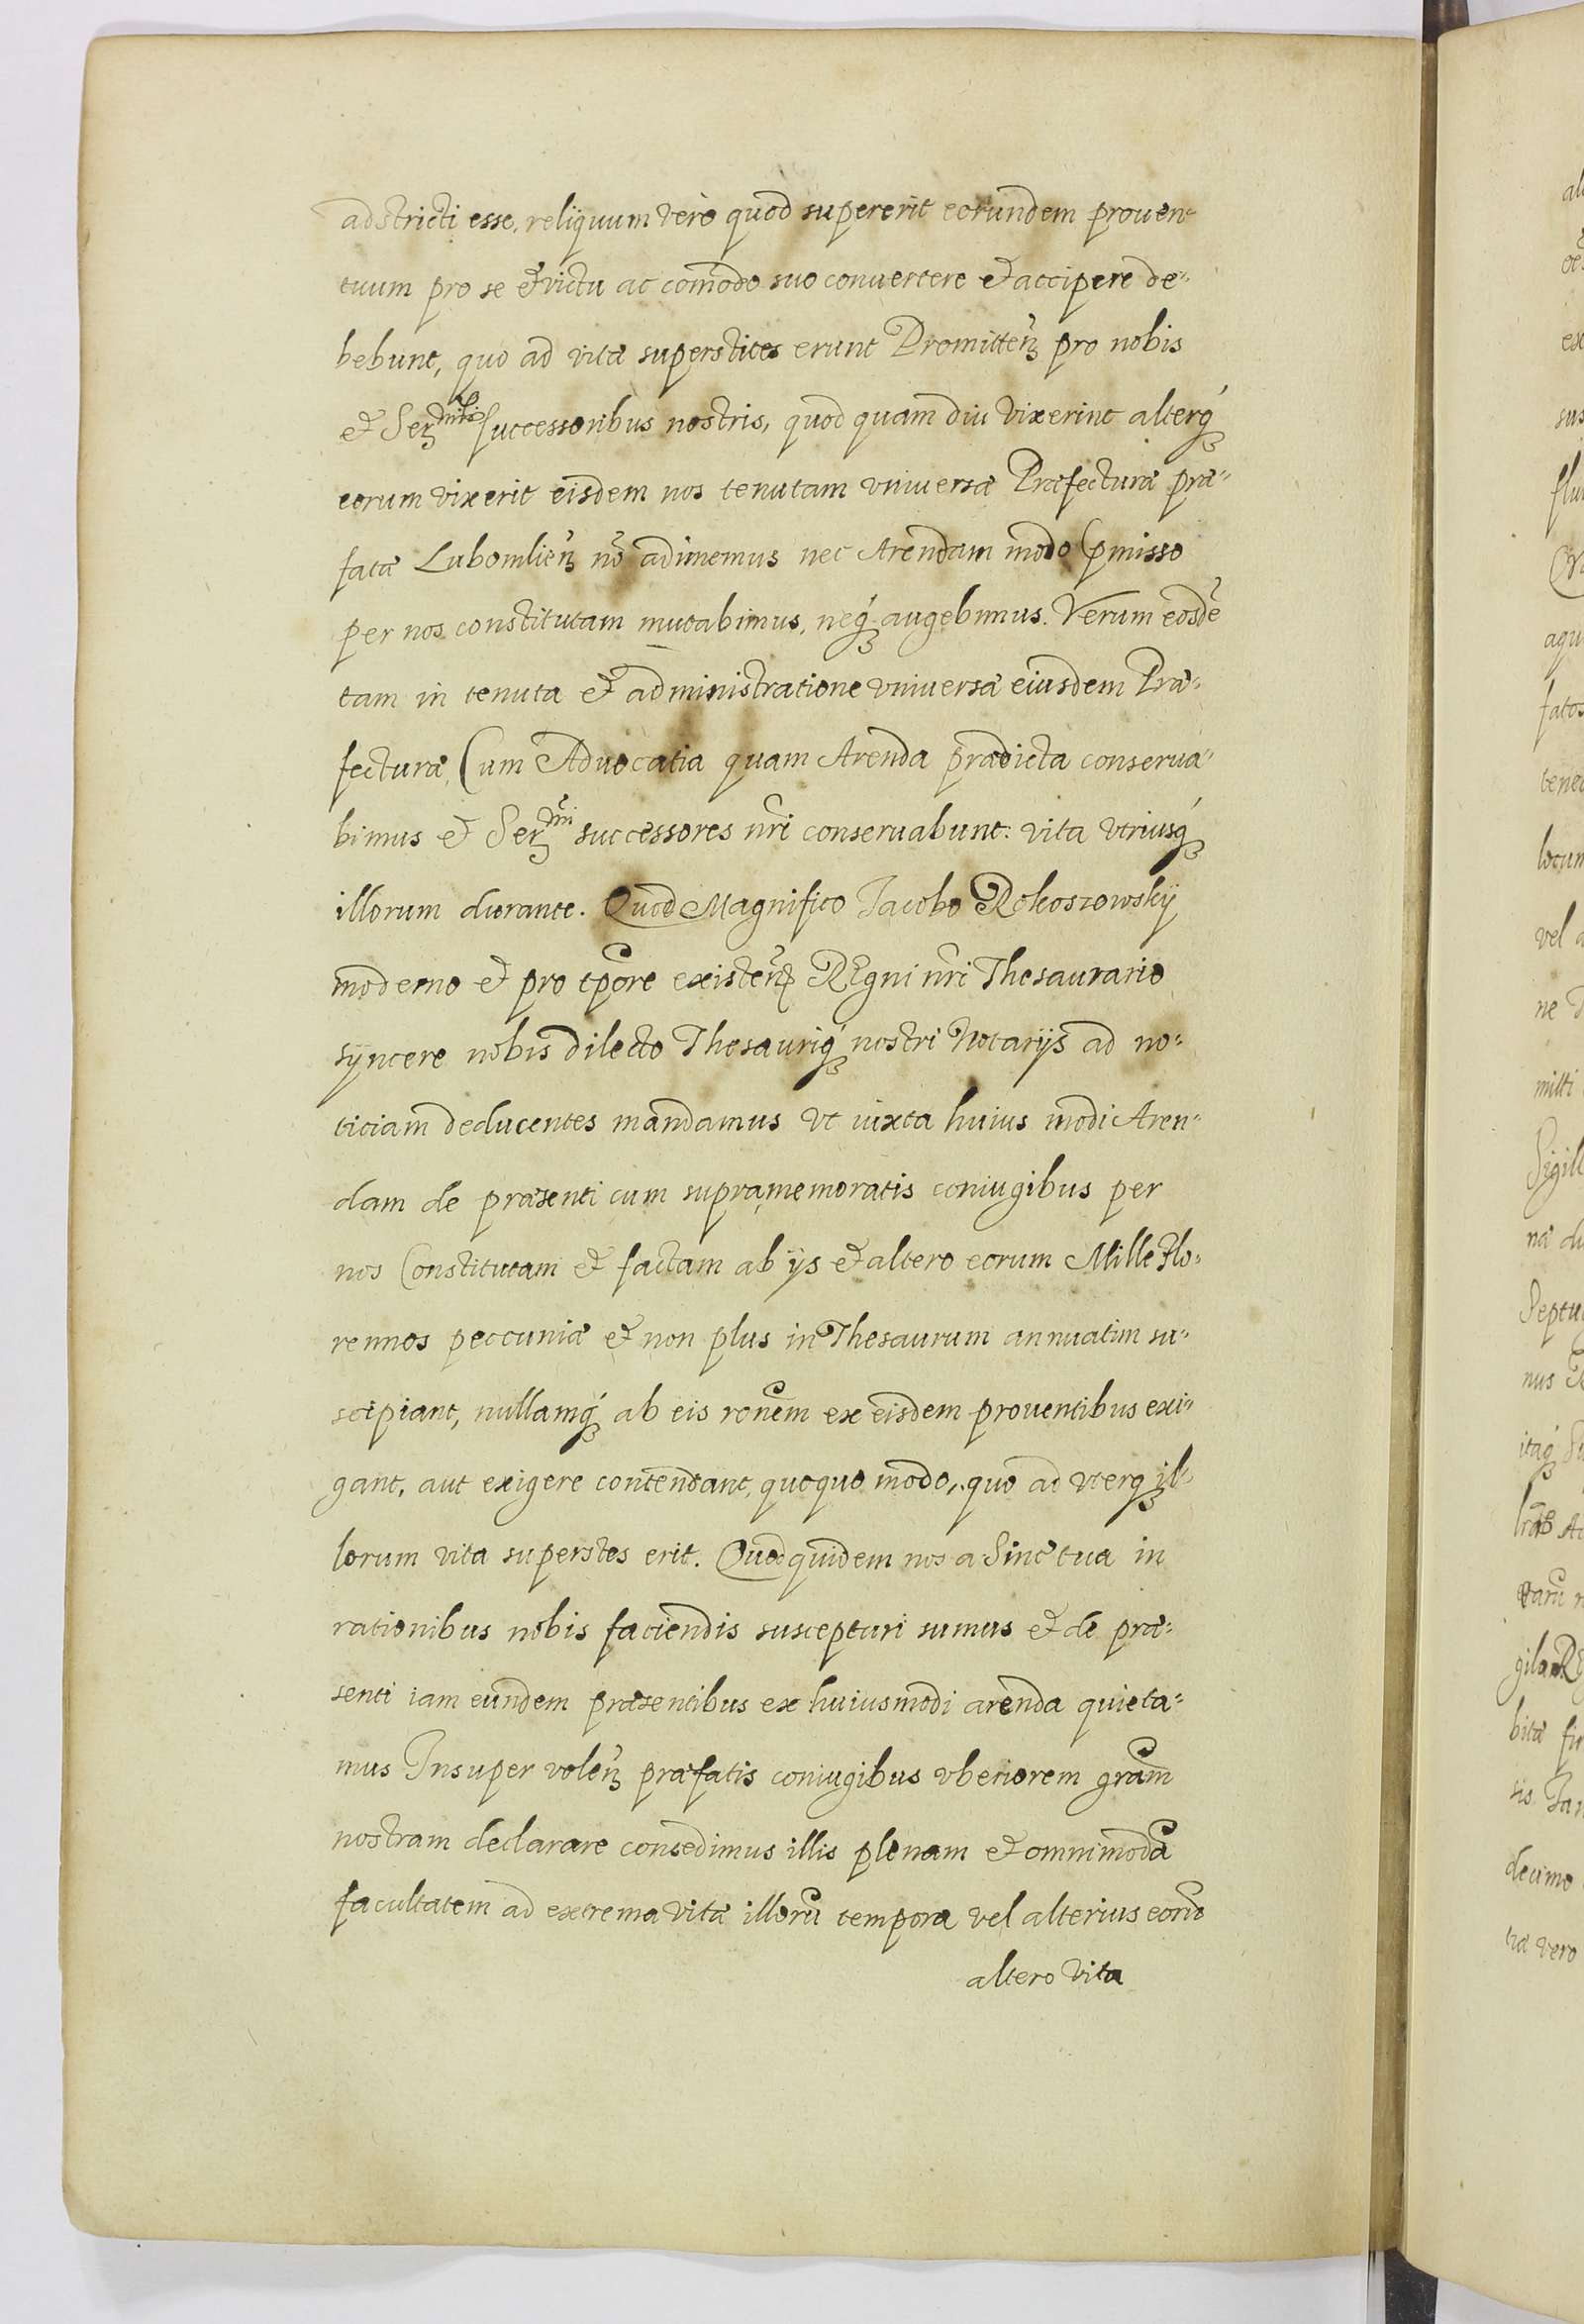 adstricti esse, reliquum vero quod supererit eorundem prouen-
tuum pro se et victu ac comodo suo conuertere et accipere de-
bebunt, quo ad vitæ superstites erunt Promitteñ pro nobis
et Ser successoribus nostris, quod quam diu vixerint alterq́
eorum vixerit eisdem nos tenutam vniuersæ Præfecturæ præ-
fatæ Lubomlieñ nõ adimemus nec Arendam modo pmisso
per nos constitutam mutabimus, neq́ augebimus. Verum eosdẽ
tam in tenuta et administratione vniuersæ eiusdem Præ-
fecturæ, Cum Aduocatia quam Arenda prædicta conserua-
bimus et Ser successores nr̃i conseruabunt: vita vtriusq́
illorum durante. Quod Magnifico Iacobo Rokoszowskÿ
moderno et pro tpore existeñ REgni nr̃i Thesaurario
sÿncere nobis dilecto Thesauriq́ nostri Notarÿs ad no-
ticiam deducentes mandamus vt iuxta huius modi Aren-
dam de præsenti cum supramemoratis coniugibus per
nos Constitutam et factam ab ÿs et altero eorum Mille Flo-
rennos peccuniæ et non plus in Thesaurum annuatim su-
scipiant, nullamq́ ab eis ronem ex eisdem prouentibus exi-
gant, aut exigere contendant, quoquo modo, quo ad vterq il-
lorum vita superstes erit. Quod quidem nos a Sinc tua in
rationibus nobis faciendis suscepturi sumus et de præ-
senti iam eundem præsentibus ex huiusmodi arenda quieta-
mus Insuper voleñ præfatis coniugibus vberiorem gram
nostram declarare consedimus illis plenam et omnimodã
facultatem ad extrema vitæ illorũ tempora vel alterius eorũ
altero vita